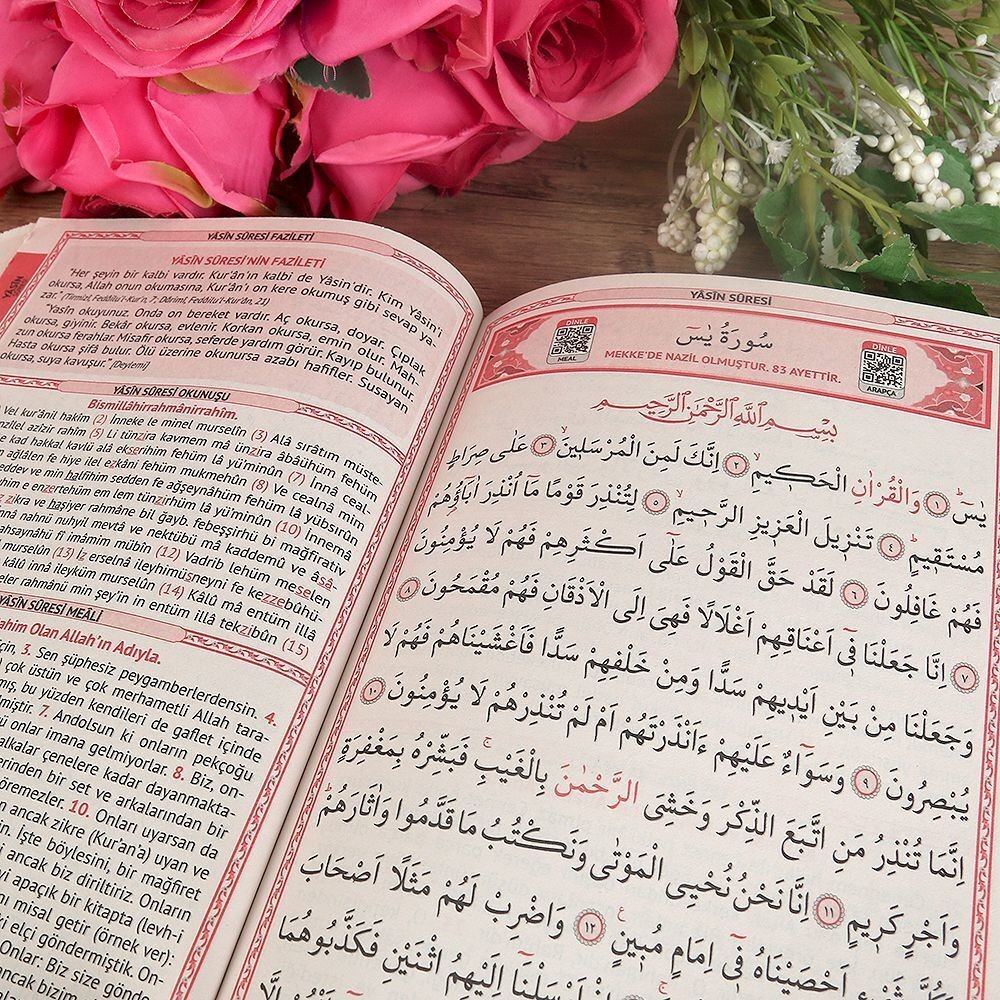 YÂSÎN SÛRESİ FAZİLETİ
YÂSÎN SÛRESİ'NİN FAZİLETİ
"Her şeyin bir kalbi vardır. Kur'ân'ın kalbi de Yâsin'dir. Kim Yâsin'i
okursa, Allah onun okumasına, Kur'ân'ı on kere okumuş gibi sevap ya-
zar." (Tirmizî, Fedâilu'l-Kur'ân, 7; Dârimî, Fedâilu'l-Kur'ân, 21)
"Yasîn okuyunuz. Onda on bereket vardır. Aç okursa, doyar. Çıplak
okursa, giyinir. Bekâr okursa, evlenir. Korkan okursa, emin olur. Mah-
zun okursa ferahlar. Misafir okursa, seferde yardım görür. Kayıp bulunur.
Hasta okursa şifâ bulur. Ölü üzerine okunursa azabı hafifler. Susayan
okursa, suya kavuşur." (Deylemî)
YÂSÎN SÛRESİ OKUNUŞU
Bismillâhirrahmânirrahîm.
Vel kur'ânil hakîm (2) İnneke le minel murselîn (3) Alâ sırâtım müste-
azîzir rahîm (5) Li tünzira kavmem mâ ünzira âbâühüm fehüm
kad hakkal kavlü alâ ekserihim fehüm lâ yü'minûn (7) İnnâ ceal-
ağlâlen fe hiye ilel ezkâni fehüm mukmehûn (8) Ve cealnâ mim
seddev ve min halfihim sedden fe ağşeynâhüm fehüm lâ yübsırûn
e enzertehüm em lem tünzirhüm lâ yü'minûn (10) İnnemâ
zikra ve haşiyer rahmâne bil ğayb. febeşşirhü bi mağfirativ
innâ nahnü nuhyil mevtâ ve nektübü mâ kaddemû ve âsâ-
ahsaynâhü fî imâmim mübîn (12) Vadrib lehüm meselen
murselûn (13) İz erselnâ ileyhimüsneyni fe kezzebûhü-
kâlû innâ ileyküm murselûn (14) Kâlû mâ entüm illâ
rahmânü min şey'in in entüm illâ tekzibûn (15)
YÂSÎN SÛRESİ MEÂLİ
Rahim Olan Allah'ın Adıyla.
için, 3. Sen şüphesiz peygamberlerdensin. 4.
çok üstün ve çok merhametli Allah tara-
bu yüzden kendileri de gaflet içinde
7. Andolsun ki onların pekçoğu
onlar imana gelmiyorlar. 8. Biz, on-
halkalar çenelere kadar dayanmakta-
bir set ve arkalarından bir
göremezler. 10. Onları uyarsan da
ancak zikre (Kur'an'a) uyan ve
İşte böylesini, bir mağfiret
ancak biz diriltiriz. Onların
apaçık bir kitapta (levh-i
misal getir (örnek ver):
elçi göndermiştik. On-
Onlar: Biz size gönde-
YÂSÎN SÛRESİ
DİNLE
MEAL
سورة يٰسٓ
MEKKE'DE NAZİL OLMUŞTUR. 83 AYETTİR.
DİNLE
ARAPÇA
بِسْمِ اللّٰهِ الرَّحْمٰنِ الرَّحِيمِ
يٰسٓۜ ﴿١﴾ وَالْقُرْاٰنِ الْحَك۪يمِۙ ﴿٢﴾ اِنَّكَ لَمِنَ الْمُرْسَل۪ينَۙ ﴿٣﴾ عَلٰى صِرَاطٍ
مُسْتَق۪يمٍۜ ﴿٤﴾ تَنْز۪يلَ الْعَز۪يزِ الرَّح۪يمِۙ ﴿٥﴾ لِتُنْذِرَ قَوْمًا مَٓا اُنْذِرَ اٰبَٓاؤُ۬هُمْ
فَهُمْ غَافِلُونَ ﴿٦﴾ لَقَدْ حَقَّ الْقَوْلُ عَلٰٓى اَكْثَرِهِمْ فَهُمْ لَا يُؤْمِنُونَ
﴿٧﴾ اِنَّا جَعَلْنَا ف۪ٓي اَعْنَاقِهِمْ اَغْلَالًا فَهِيَ اِلَى الْاَذْقَانِ فَهُمْ مُقْمَحُونَ ﴿٨﴾
وَجَعَلْنَا مِنْ بَيْنِ اَيْد۪يهِمْ سَدًّا وَمِنْ خَلْفِهِمْ سَدًّا فَاَغْشَيْنَاهُمْ فَهُمْ لَا
يُبْصِرُونَ ﴿٩﴾ وَسَوَٓاءٌ عَلَيْهِمْ ءَاَنْذَرْتَهُمْ اَمْ لَمْ تُنْذِرْهُمْ لَا يُؤْمِنُونَ ﴿١٠﴾
اِنَّمَا تُنْذِرُ مَنِ اتَّبَعَ الذِّكْرَ وَخَشِيَ الرَّحْمٰنَ بِالْغَيْبِۚ فَبَشِّرْهُ بِمَغْفِرَةٍ
وَاَجْرٍ كَر۪يمٍ ﴿١١﴾ اِنَّا نَحْنُ نُحْيِي الْمَوْتٰى وَنَكْتُبُ مَا قَدَّمُوا وَاٰثَارَهُمْۜ
اَحْصَيْنَاهُ ف۪ٓي اِمَامٍ مُب۪ينٍ۟ ﴿١٢﴾ وَاضْرِبْ لَهُمْ مَثَلًا اَصْحَابَ
اِلَيْهِمُ اثْنَيْنِ فَكَذَّبُوهُمَا